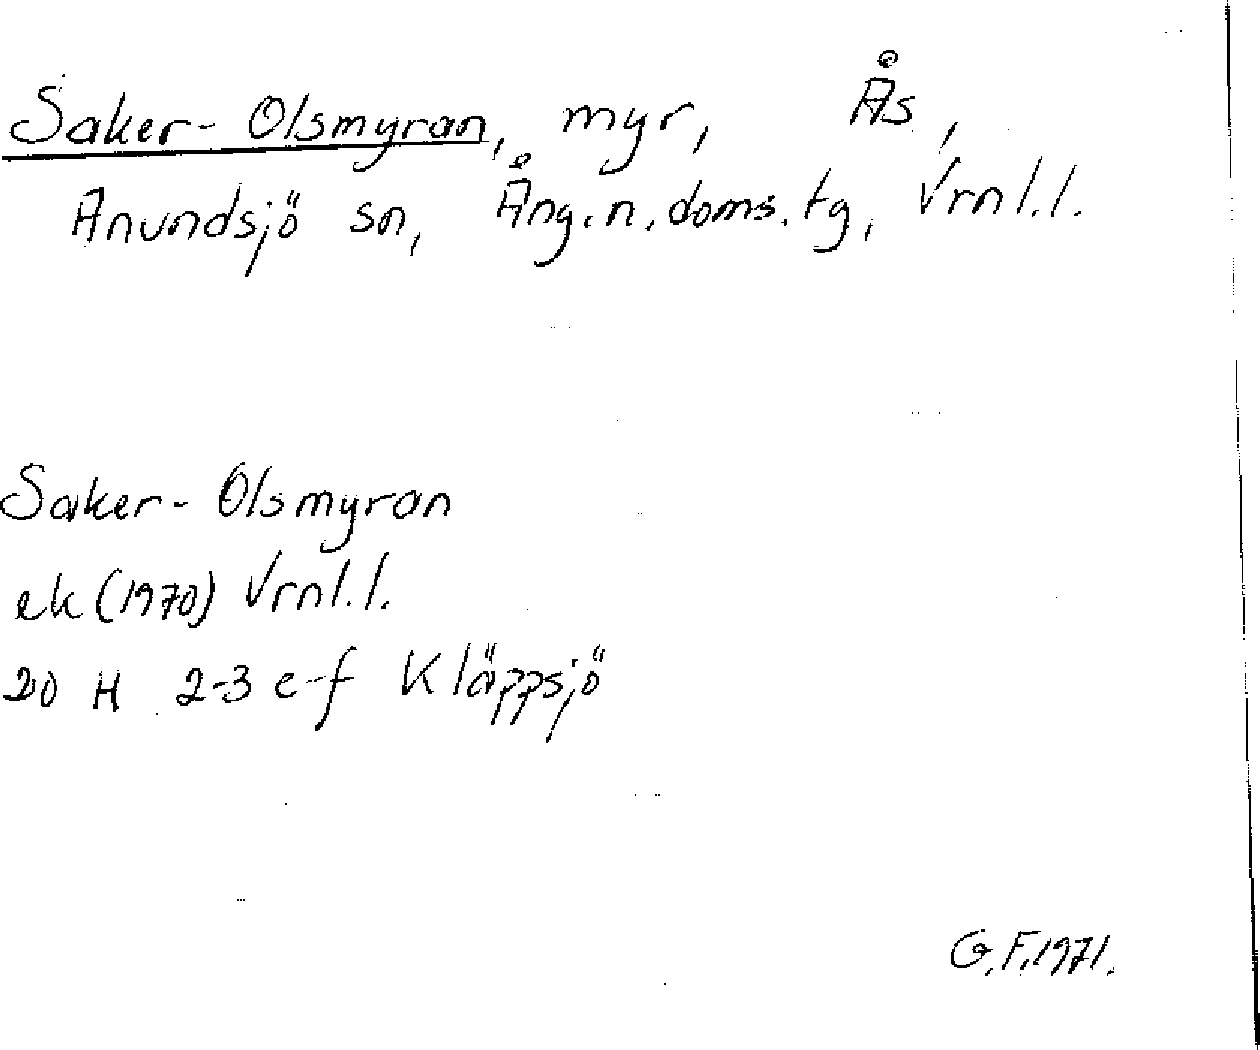 Saker-Olsmyran, myr, Ås,
Anundsjö sn, Ång.n.doms.tg, Vrnl.l.
Saker-Olsmyran
ek (1970) Vrnl.l.
20 H 2-3 e-f Kläppsjö
G.F. 1971.